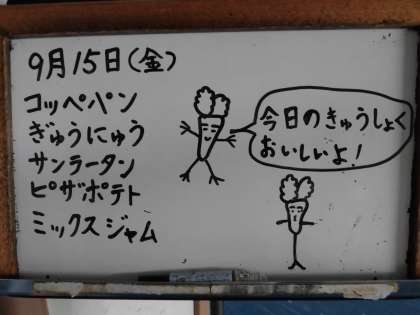 9月15日(金)
コッペパン
ぎゅうにゅう
サンラータン
ピザポテト
ミックスジャム
今日のきゅうしょく
おいしいよ!